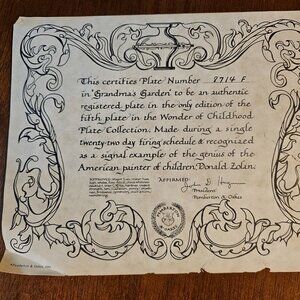 This certifies Plate Number 8714 F
in "Grandma's Garden" to be an authentic
registered plate in the only edition of the
fifth plate in the Wonder of Childhood
Plate Collection. Made during a single
twenty-two day firing schedule & recognized
as a signal example of the genius of the
American painter of children, Donald Zolan.
AFFIRMED
President
Pemberton & Oakes